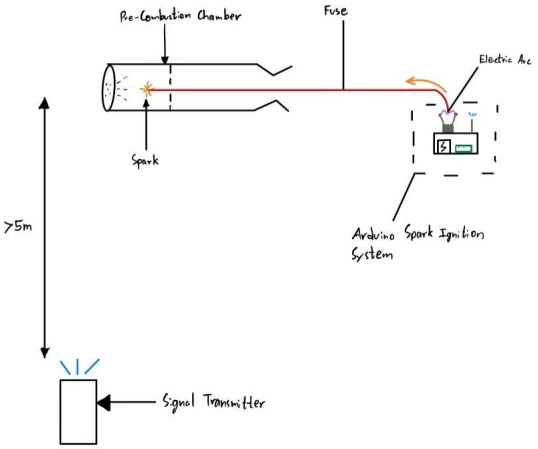 Pre-Combustion Chamber
Fuse
Electric Arc
Spark
>5m
Arduino Spark Ignition
System
Signal Transmitter